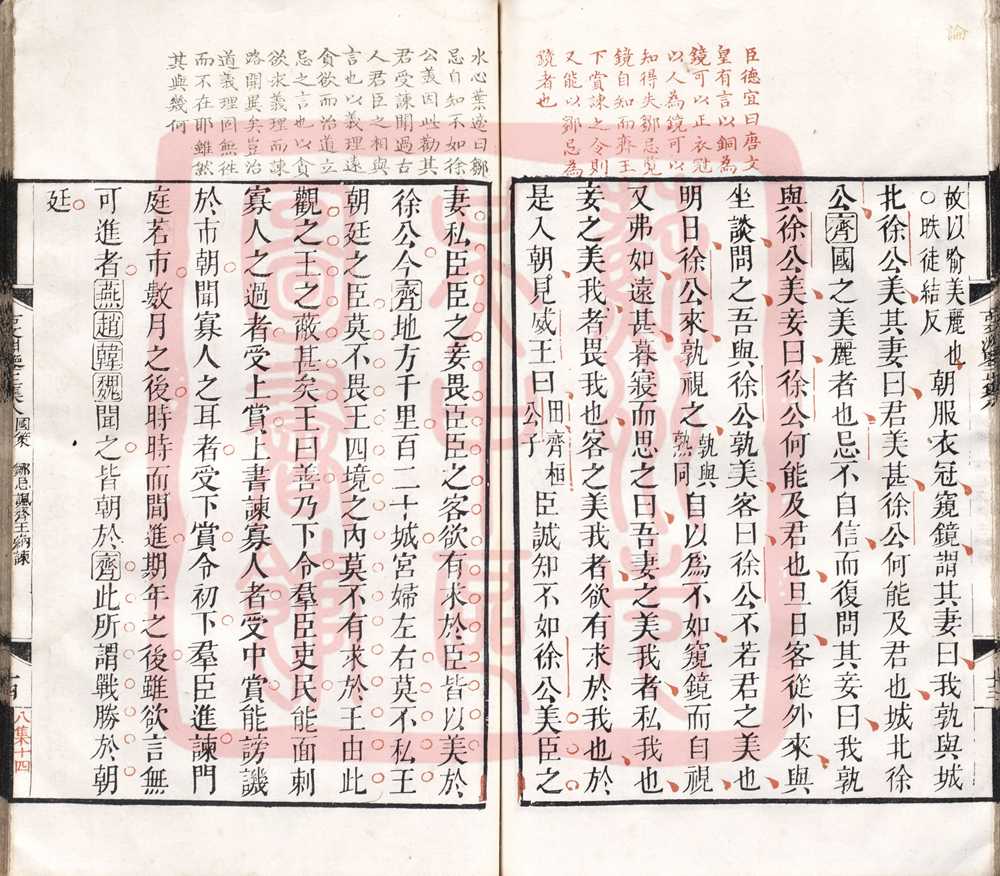 臣德宜曰唐文
皇有言以銅為
鏡可以正衣冠
以人為鏡可以
知得失鄒忌覽
鏡自知而齊王
下賞諫之令則
又能以鄒忌為
鏡者也
故以喻美麗也
○昳徒結反
朝服衣冠窺鏡謂其妻曰我孰與城
北徐公美其妻曰君美甚徐公何能及君也城北徐
公齊國之美麗者也忌不自信而復問其妾曰我孰
與徐公美妾曰徐公何能及君也旦日客從外來與
坐談問之吾與徐公孰美客曰徐公不若君之美也
明日徐公來孰視之
孰與
熟同
自以為不如窺鏡而自視
又弗如遠甚暮寢而思之曰吾妻之美我者私我也
妾之美我者畏我也客之美我者欲有求於我也於
是入朝見威王曰
田齊桓
公子
臣誠知不如徐公美臣之
水心葉適曰鄒
忌自知不如徐
公義因此勸其
君受諫聞過古
人君臣之相與
言也以義理遠
貪欲而治道立
忌之言也以貪
欲求義理而諫
路開異矣豈治
道義理固無徃
而不在耶雖然
其與幾何
妻私臣臣之妾畏臣臣之客欲有求於臣皆以美於
徐公今齊地方千里百二十城宮婦左右莫不私王
朝廷之臣莫不畏王四境之內莫不有求於王由此
觀之王之蔽甚矣王曰善乃下令羣臣吏民能面刺
寡人之過者受上賞上書諫寡人者受中賞能謗譏
於市朝聞寡人之耳者受下賞令初下羣臣進諫門
庭若市數月之後時時而間進期年之後雖欲言無
可進者燕趙韓魏聞之皆朝於齊此所謂戰勝於朝
廷
國策
鄒忌諷齊王納諫
八集十四